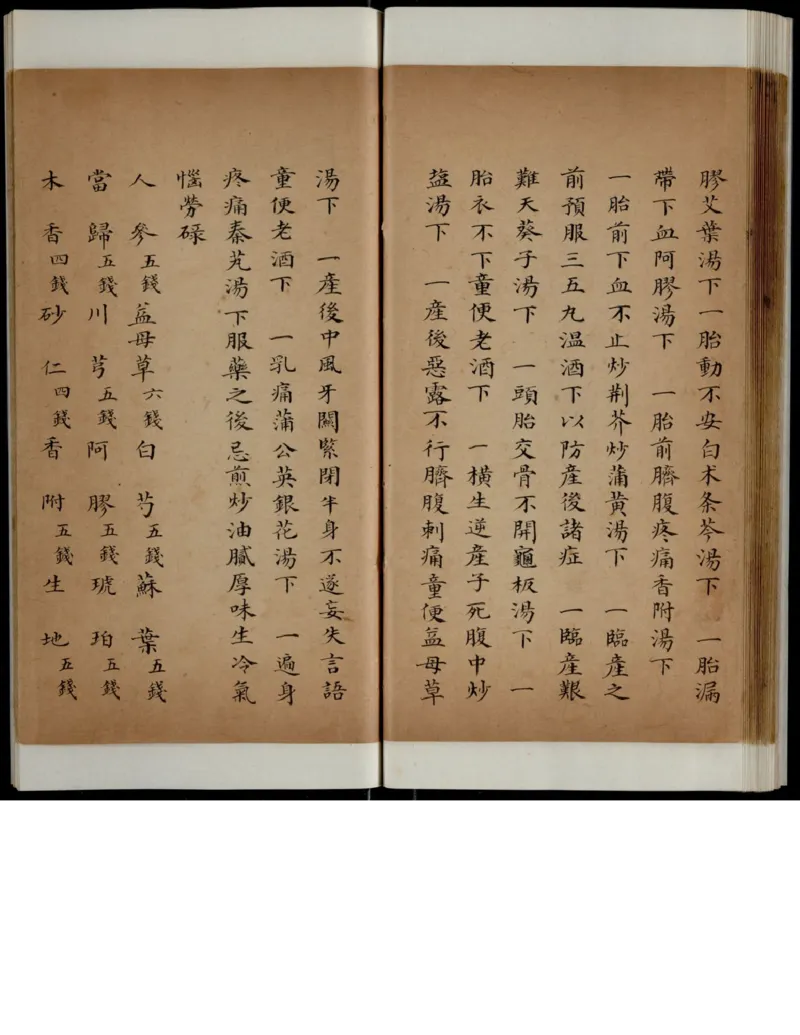 膠艾葉湯下一胎動不安白术条芩湯下 一胎漏
帶下血阿膠湯下 一胎前臍腹疼痛香附湯下
一胎前下血不止炒荆芥炒蒲黄湯下 一臨產之
前預服三五丸温酒下以防產後諸症 一臨產艱
難天葵子湯下 一頭胎交骨不開龜板湯下 一
胎衣不下童便老酒下 一橫生逆產子死腹中炒
盐湯下 一產後惡露不行臍腹刺痛童便益母草
湯下 一產後中風牙關緊閉半身不遂妄失言語
童便老酒下 一乳痛蒲公英銀花湯下 一遍身
疼痛秦艽湯下服藥之後忌煎炒油膩厚味生冷氣
惱勞碌
人參五錢益母草六錢白芍五錢蘇葉五錢
當歸五錢川芎五錢阿膠五錢琥珀五錢
木香四錢砂仁四錢香附五錢生地五錢